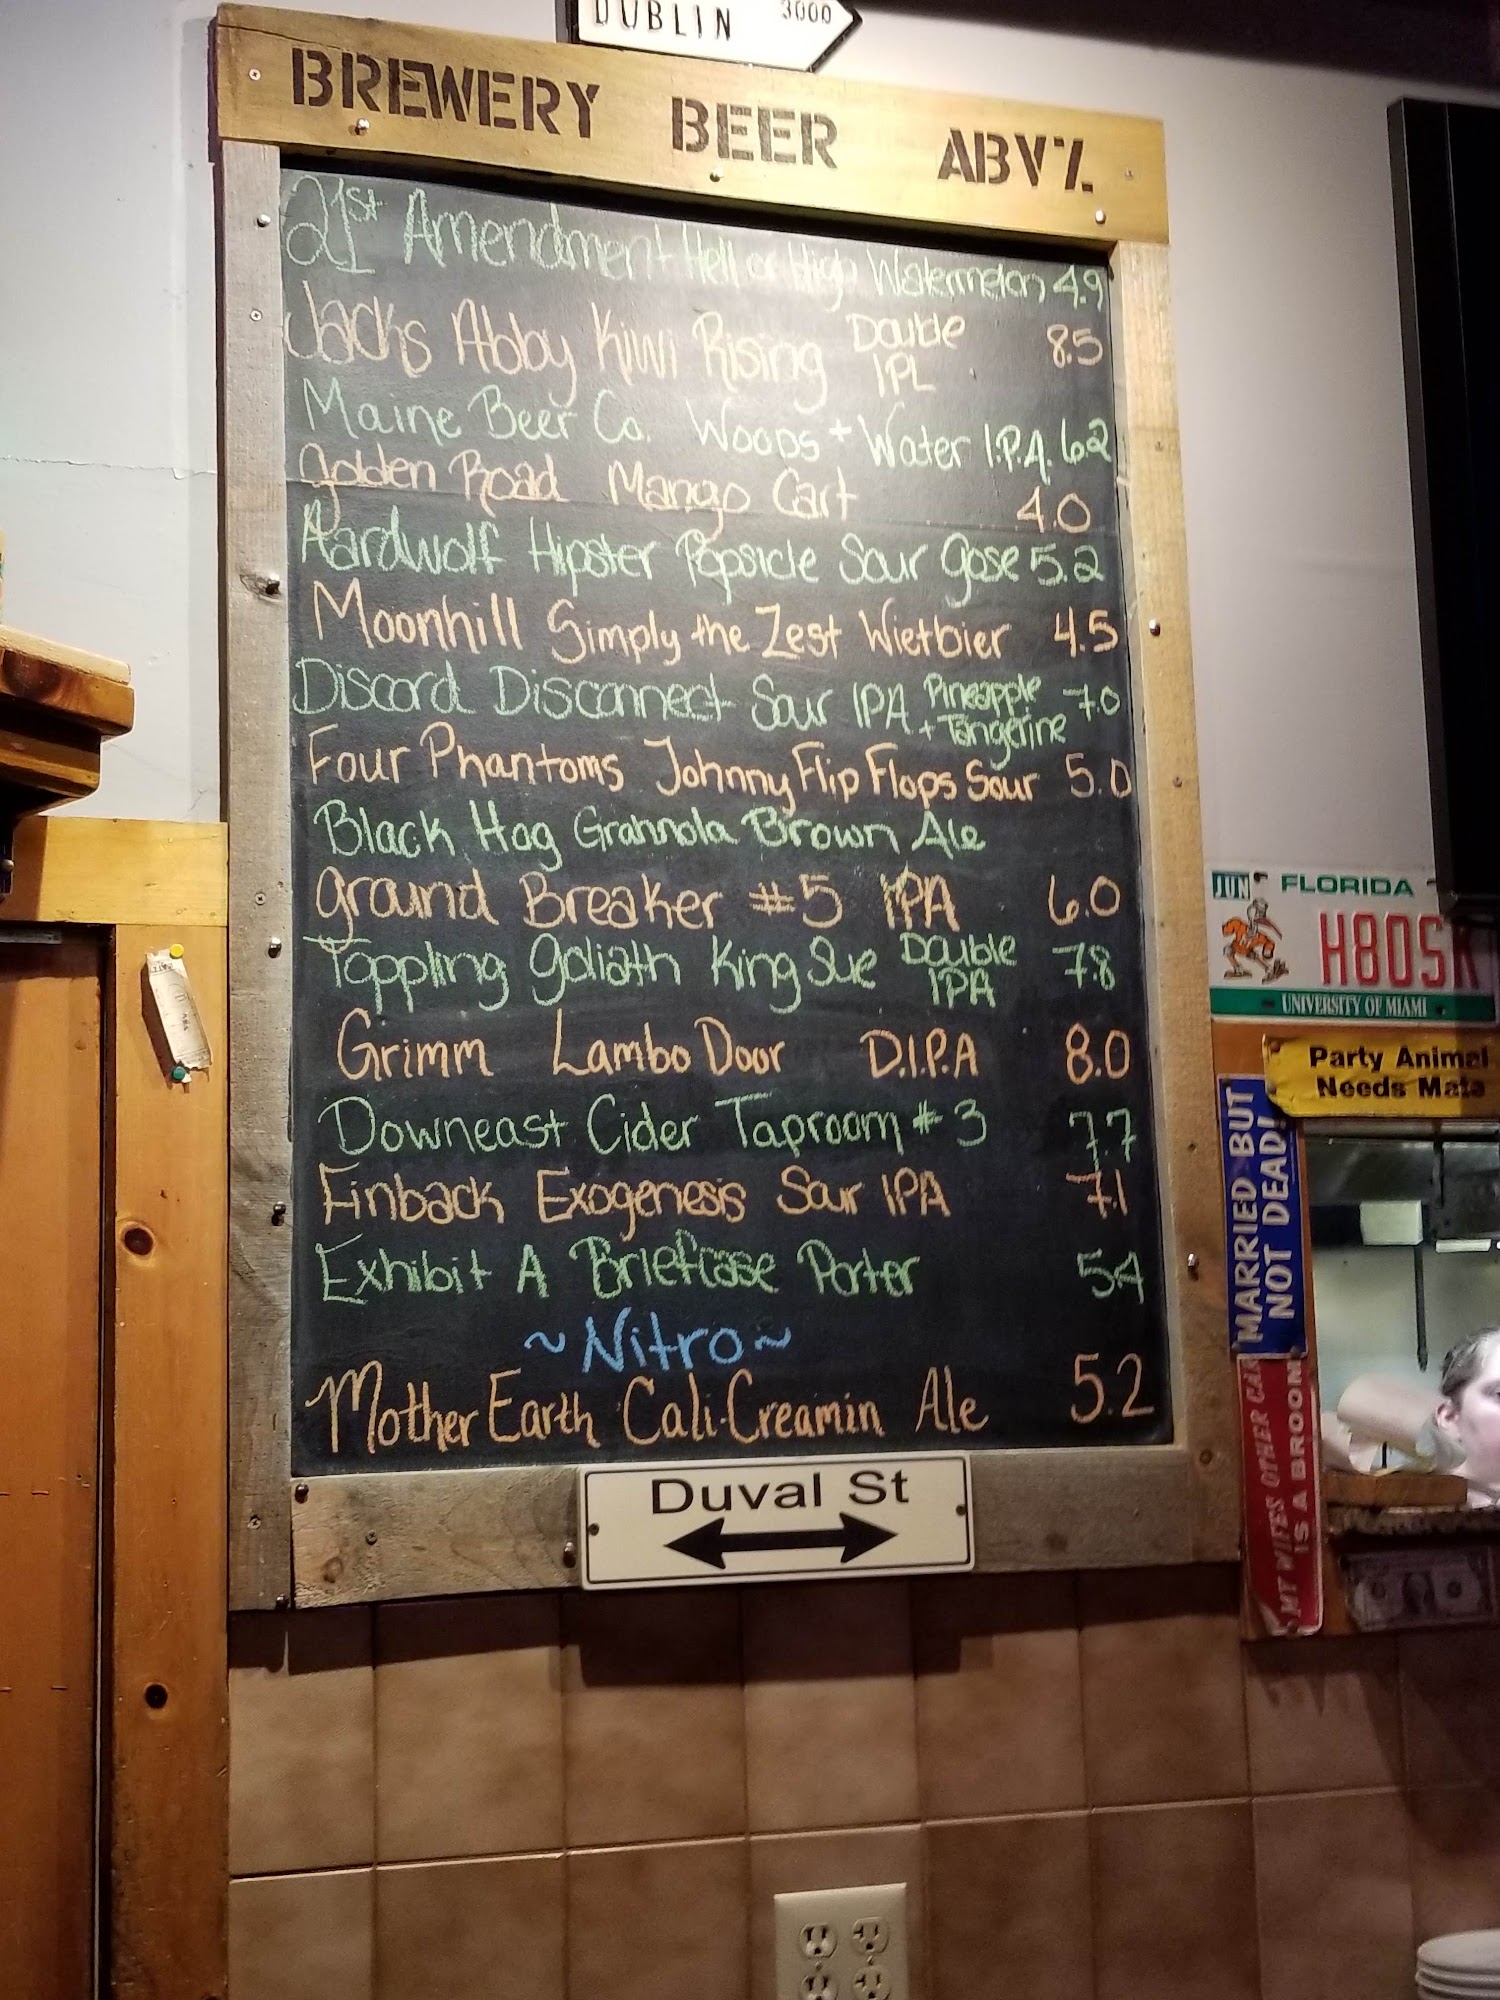 DUBLIN 3000
BREWERY BEER ABV%
21st Amendment Hell or High Watermelon 4.9
Jacks Abby Kiwi Rising Double IPL 8.5
Maine Beer Co. Woods + Water I.P.A. 6.2
Golden Road Mango Cart 4.0
Aardwolf Hipster Popsicle Sour Gose 5.2
Moonhill Simply the Zest Wietbier 4.5
Discord Disconnect Sour IPA Pineapple + Tangerine 7.0
Four Phantoms Johnny Flip Flops Sour 5.0
Black Hog Grahnola Brown Ale
Ground Breaker #5 IPA 6.0
Toppling Goliath King Sue Double IPA 7.8
Grimm Lambo Door D.I.P.A 8.0
Downeast Cider Taproom #3 7.7
Finback Exogenesis Sour IPA 7.1
Exhibit A Briefcase Porter 5.4
~Nitro~
Mother Earth Cali-Creamin Ale 5.2
Duval St
JUN FLORIDA
H80SK
UNIVERSITY OF MIAMI
Party Animal
Needs Mate
MARRIED BUT
NOT DEAD!
MY WIFES OTHER CAR
IS A BROOM